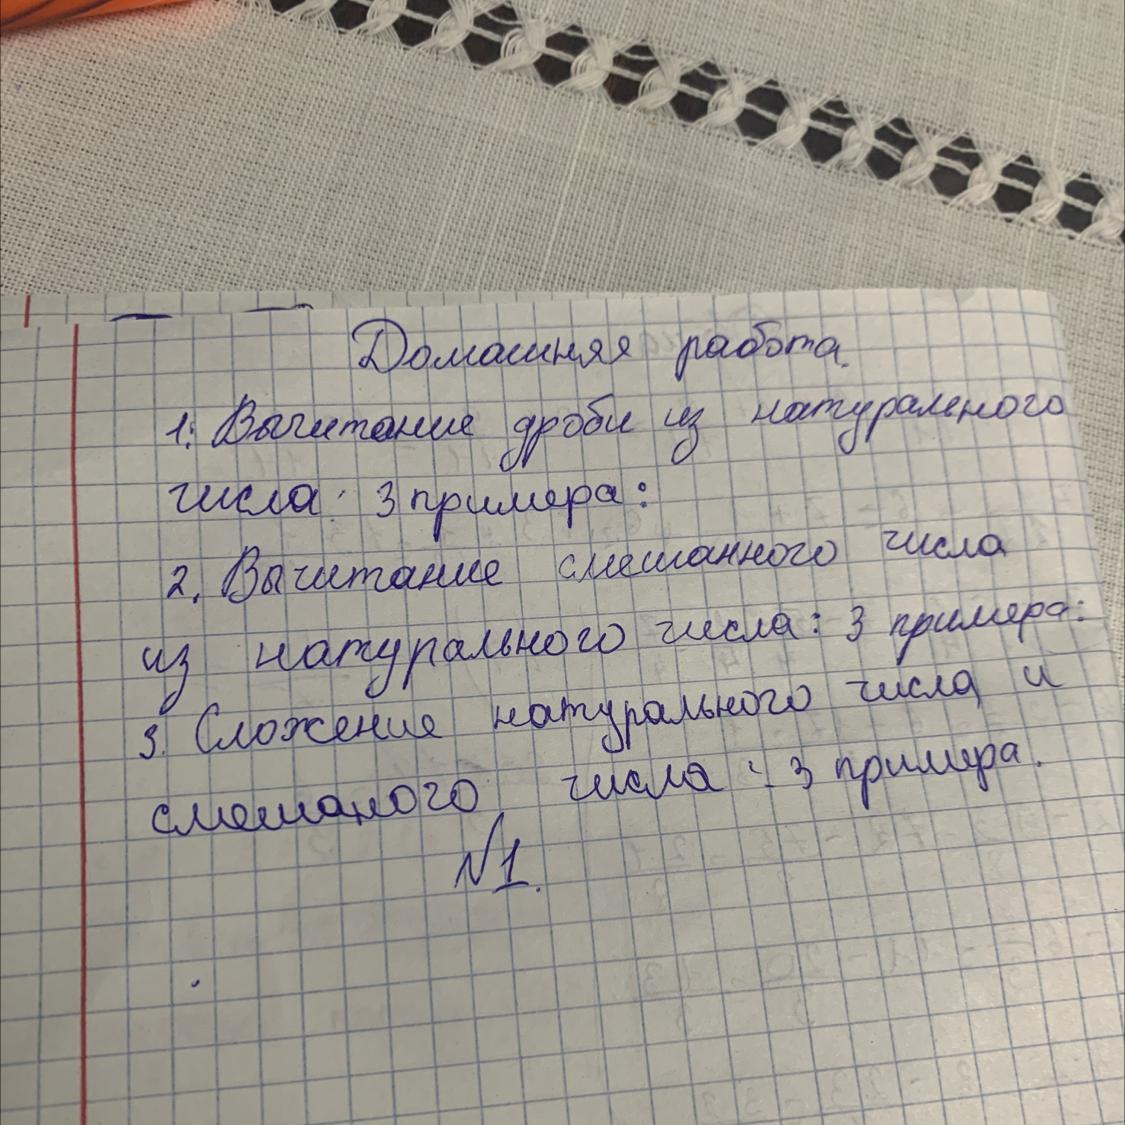 Домашняя работа.
1. Вычитание дроби из натурального
числа: 3 примера:
2. Вычитание смешанного числа
из натурального числа: 3 примера:
3. Сложение натурального числа и
смешаного числа: 3 примера.
№1.